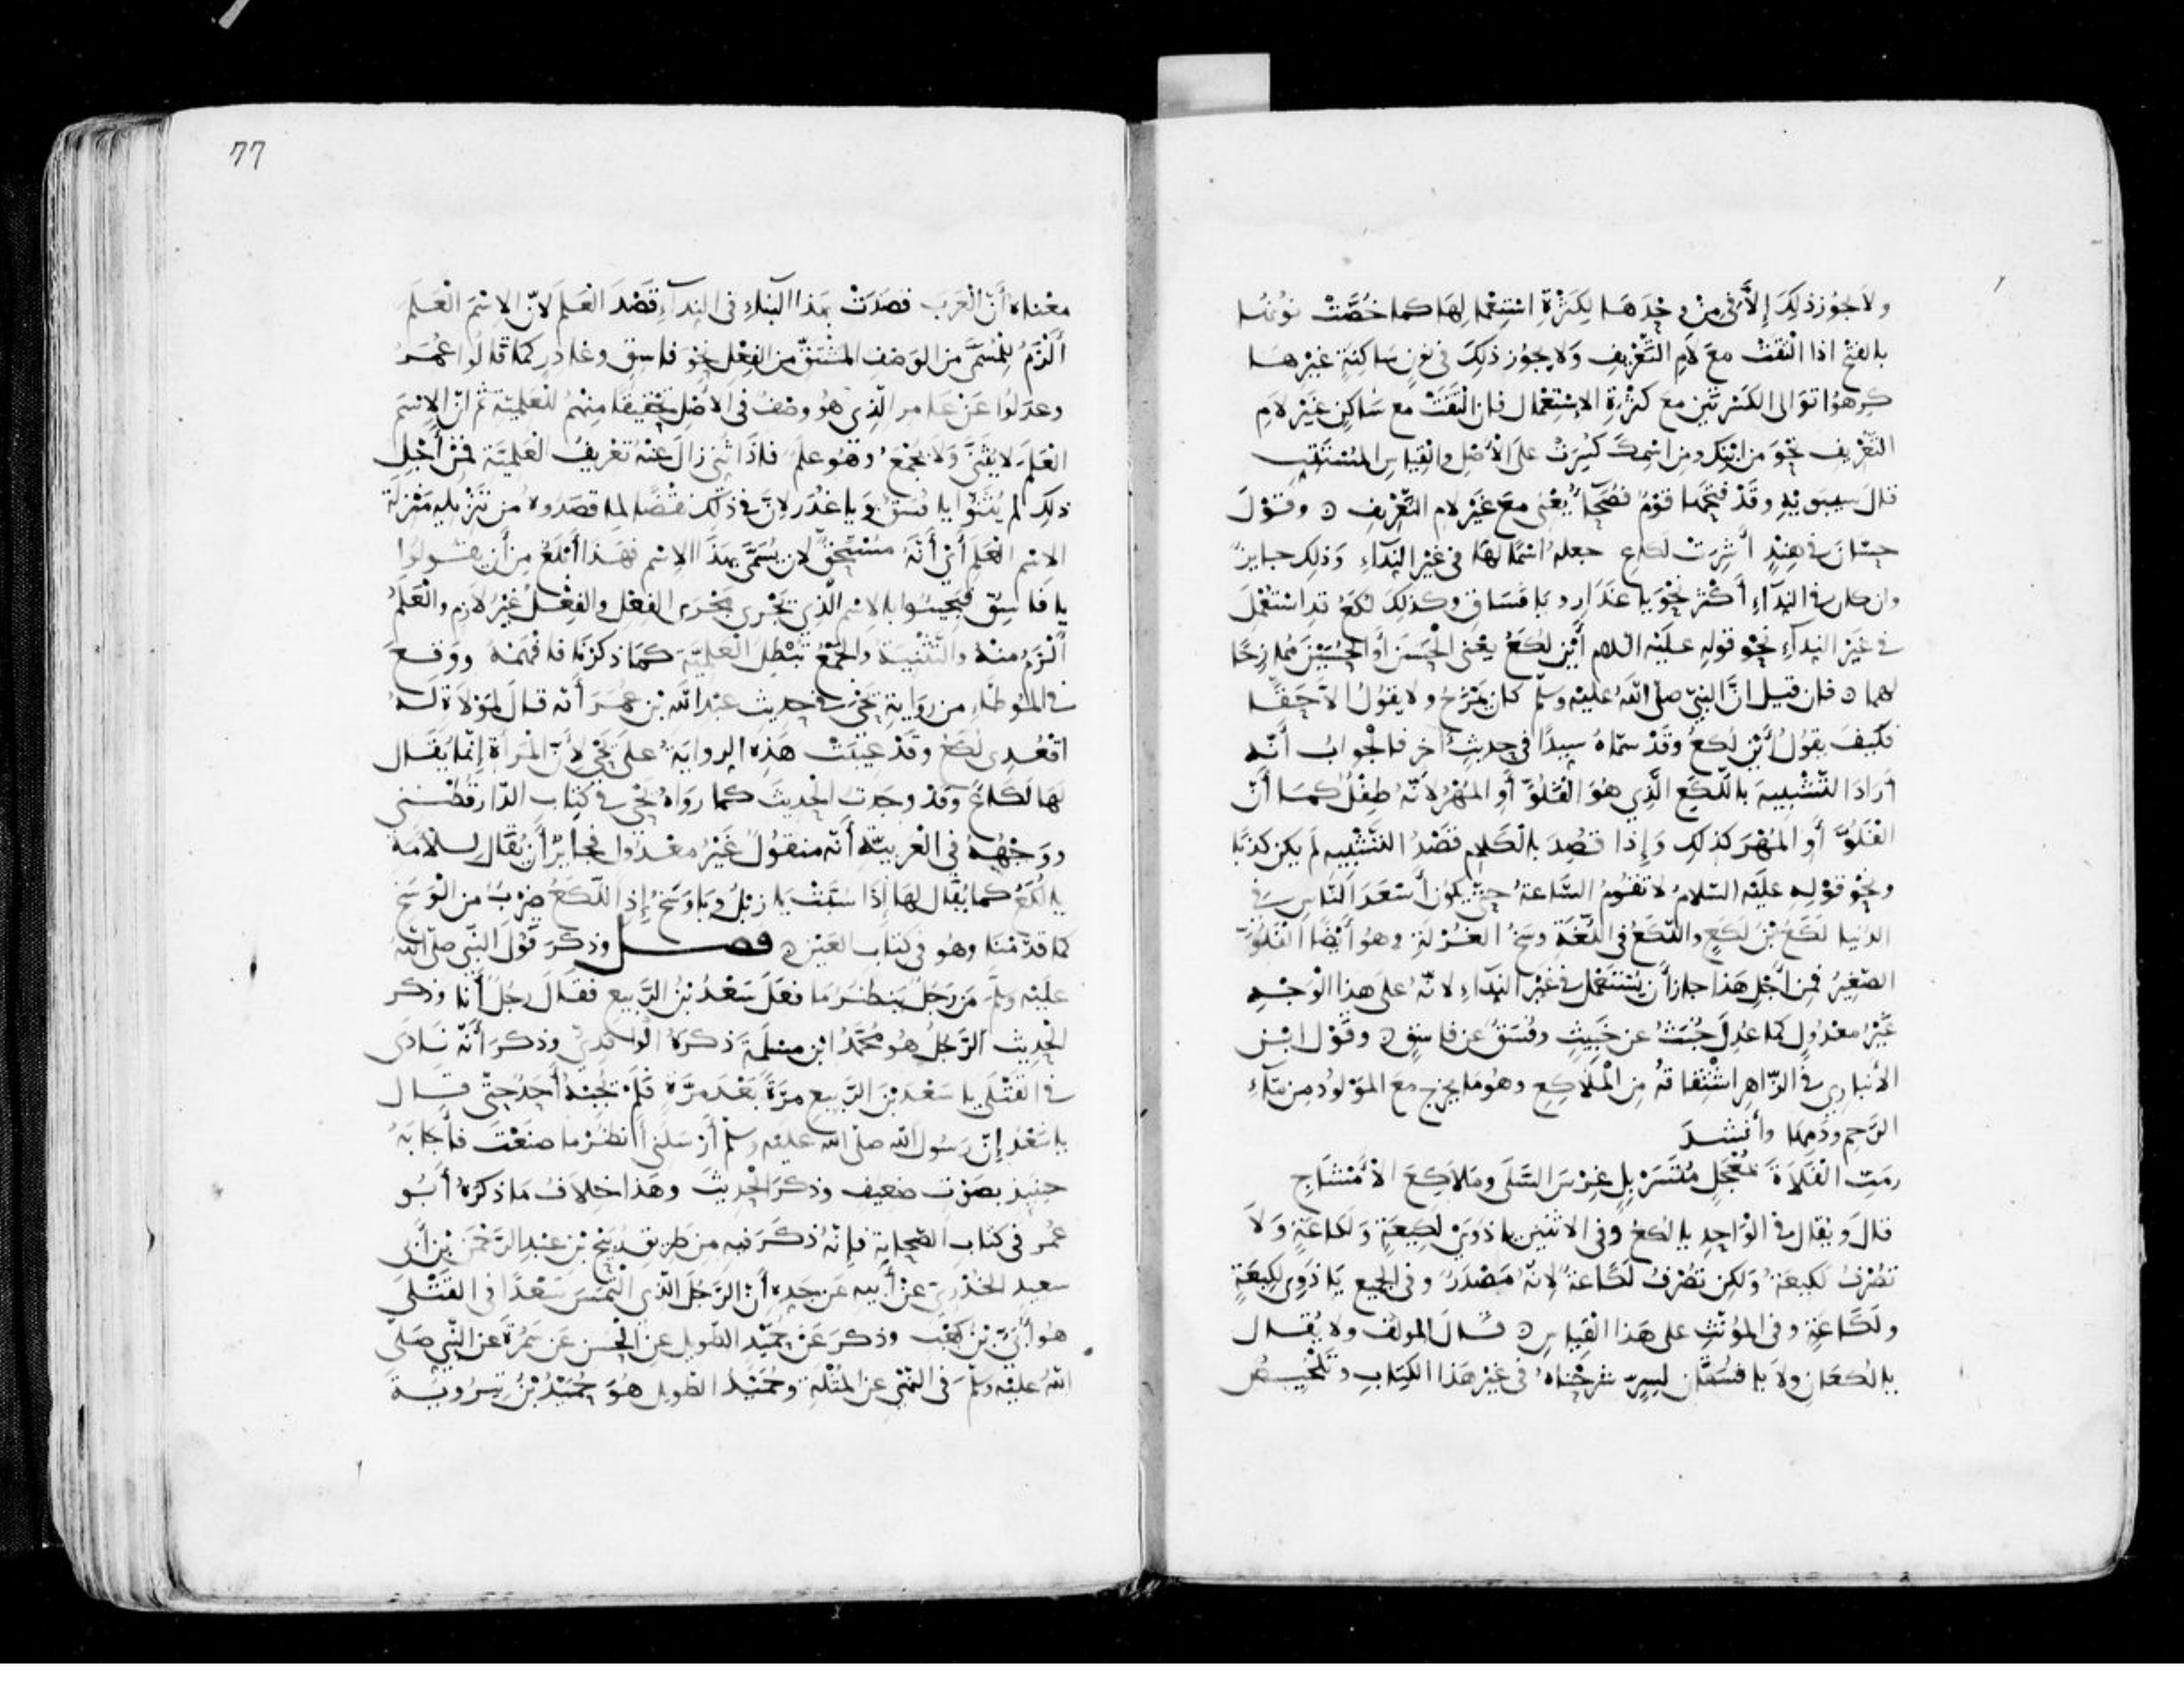 ولا يجوز ذلك إلا في مِنْ وحدها لكثرة استعمالها كما خُصَّتْ نونها
بالفتح اذا التقت مع لام التعريف ولا يجوز ذلك في نون ساكنة غيرها
كرهوا توالى الكسرتين مع كثرة الاستعمال فان التقت مع ساكن غير لام
التعريف نحو من ابنك ومن اسمك كسرت على الأصل والقياس المستتب
قال سيبويه وقد فتحها قوم فصحآء يعنى مع غير لام التعريف ه وقول
حسّان في هند أشرت لكاع جعله اسمًا لها في غير النداء وذلك جايز
وان كان في الندآء أكثر نحو يا غدار ويا فساق وكذلك لكع قد استعمل
في غير الندآء نحو قوله عليه السلام أين لكع يعنى الحسن أو الحسين ممازحًا
لهما ه فان قيل انّ النبيّ صلّى الله عليه وسلّم كان يمزح ولا يقول الاّ حقًّا
فكيف يقول أين لكع وقد سمّاه سيدًا في حديث آخر فالجواب أنّه
أراد التشبيه باللكع الذي هو الفلوّ أو المهر لأنّه طفل كما أنّ
الفلوّ أو المهر كذلك وإذا قصد بالكلام قصد التشبيه لم يكن كذبًا
ونحو قوله عليه السلام لا تقوم الساعة حتّى يكون أسعد الناس في
الدنيا لكع بن لكع واللكع في اللغة وسخ الغرلة وهو أيضًا الفلوّ
الصغير فمن أجل هذا جاز أن يستعمل في غير الندآء لانّه على هذا الوجه
غير معدول كما عدل خبث عن خبيث وفسق عن فاسق ه وقول ابن
الأنباري في الزاهر اشتقاقه من الملاكع وهو ما يخرج مع المولود من مآء
الرحم ودمها وأنشد
رمت الفلاة بمعجل متسربل غرس السلى وملاكع الأمشاج
قال ويقال في الواحد يا لكع وفي الاثنين يا ذوي لكيعة ولكاعة ولا
تصرف لكيعة ولكن تصرف لكاعة لانّه مصدر وفي الجميع يا ذوي لكيعة
ولكاعة وفي المؤنث على هذا القياس ه قال المولف ولا يقال
يا لكعان ولا يا فسقان لسرّ شرحناه في غير هذا الكتاب وتلخيص
77
معناه أنّ العرب قصدت بهذا البناء في الندآء قصد العلم لانّ الاسم العلم
ألزم للمسمّى من الوصف المشتقّ من الفعل نحو فاسق وغادر كما قالوا عمر
وعدلوا عن عامر الذي هو وصف في الأصل تحقيقًا منهم للعلميّة ثم انّ الاسم
العلم لا يثنّى ولا يجمع وهو علم فاذا ثني زال عنه تعريف العلميّة فمن أجل
ذلك لم يثنّوا يا فسق ويا غدر لانّ في ذلك نقضًا لما قصدوه من تنزيله منزلة
الاسم العلم أي أنّه مستحقّ لان يسمّى بهذا الاسم فهذا أبلغ من أن يقولوا
يا فاسق فيجيئوا بالاسم الذي يجري مجرى الفعل والفعل غير لازم والعلم
ألزم منه والتثنية والجمع تبطل العلميّة كما ذكرنا فافهمه ووقع
في الموطّأ من رواية يحيى في حديث عبد الله بن عمر أنّه قال لمولاة له
اقعدي لكع وقد عيبت هذه الرواية على يحيى لأنّ المرأة إنّما يقال
لها لكاع وقد وجدت الحديث كما رواه يحيى في كتاب الدّارقطني
ووجهه في العربيّة أنّه منقول غير معدول فجايز أن يقال للامة
يا لكع كما يقال لها إذا سبّت يا زبل ويا وسخ إذ اللكع ضرب من الوسخ
كما قدّمنا وهو في كتاب العين ه فصل وذكر قول النبي صلّى الله
عليه وسلّم من رجل ينظر ما فعل سعد بن الربيع فقال رجل أنا وذكر
الحديث الرجل هو محمّد ابن مسلمة ذكره الواقديّ وذكر أنّه نادى
في القتلى يا سعد بن الربيع مرّة بعد مرّة فلم يجبه أحد حتّى قال
يا سعد إنّ رسول الله صلى الله عليه وسلم أرسلني أنظر ما صنعت فأجابه
حينيذ بصوت ضعيف وذكر الحديث وهذا خلاف ما ذكره أبو
عمر في كتاب الصحابة فإنّه ذكر فيه من طريق ربيح بن عبد الرحمن بن أبي
سعيد الخدريّ عن أبيه عن جده أنّ الرجل الذي التمس سعدًا في القتلى
هو أبيّ بن كعب وذكر عن حميد الطويل عن الحسن عن سمرة عن النبي صلى
الله عليه وسلم في النهي عن المثلة وحميد الطويل هو حميد بن تيرويه